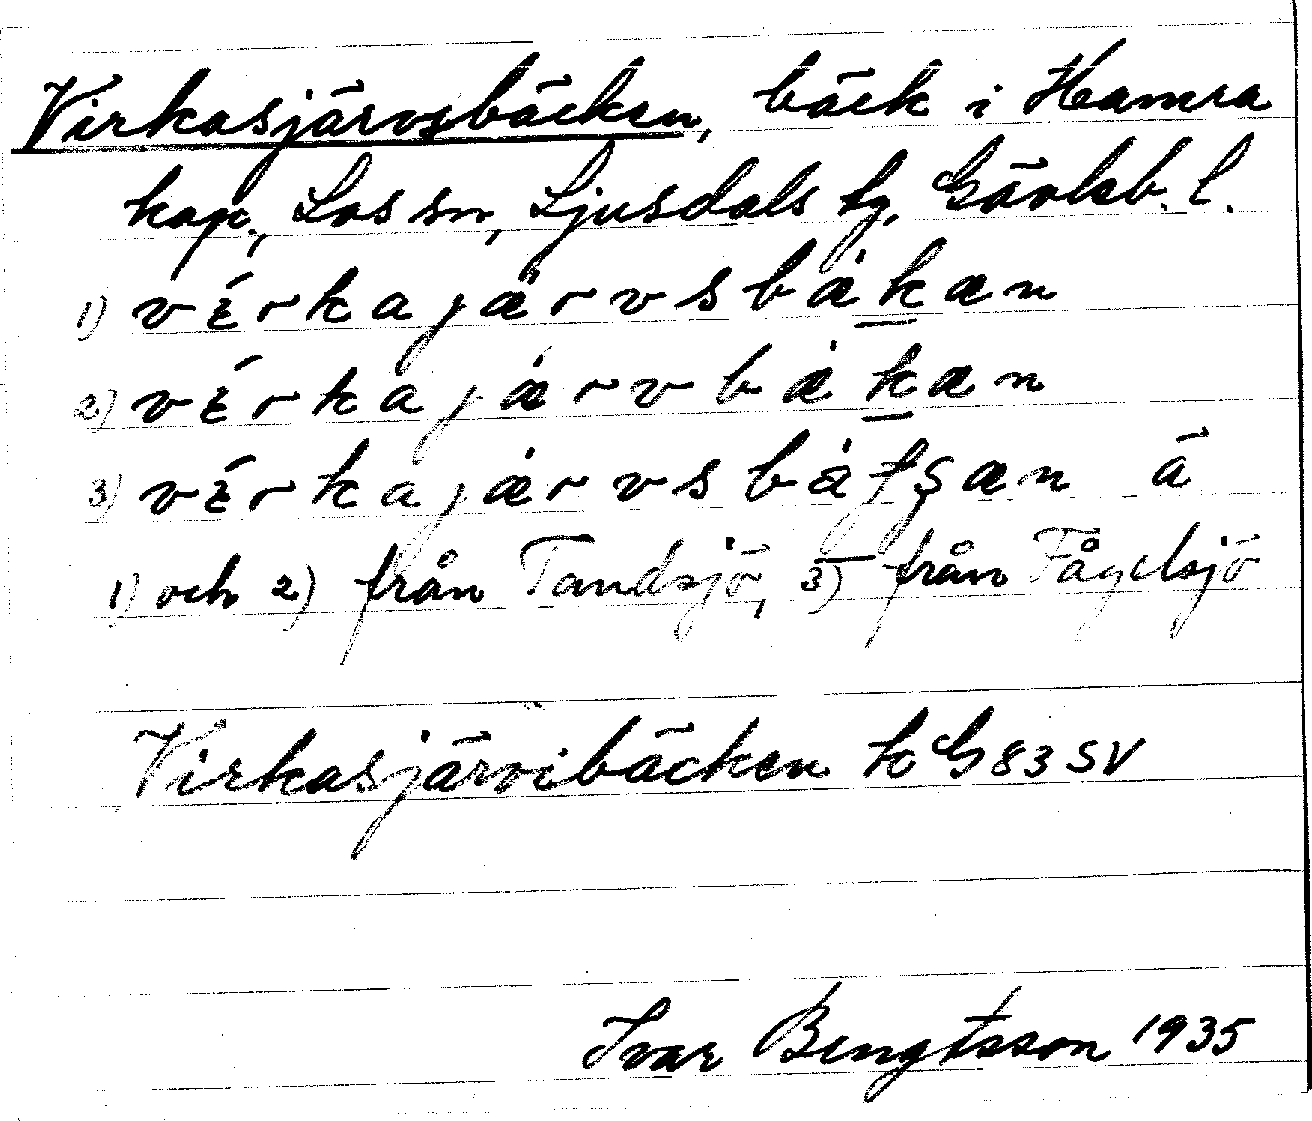 Virkasjärvsbäcken, bäck i Hamra
kap., Los sn, Ljusdals tg, Gävleb. l.
1) vɛ́rkajärvsbäkæn
2) vɛ́rkajä̀rvbäkæn
3) vɛ́rkajä̀rvsbätʂæn ā
1) och 2) från Tandsjö, 3) från Fågelsjö
Virkasjärvibäcken k G 83 SV
Ivar Bengtsson 1935